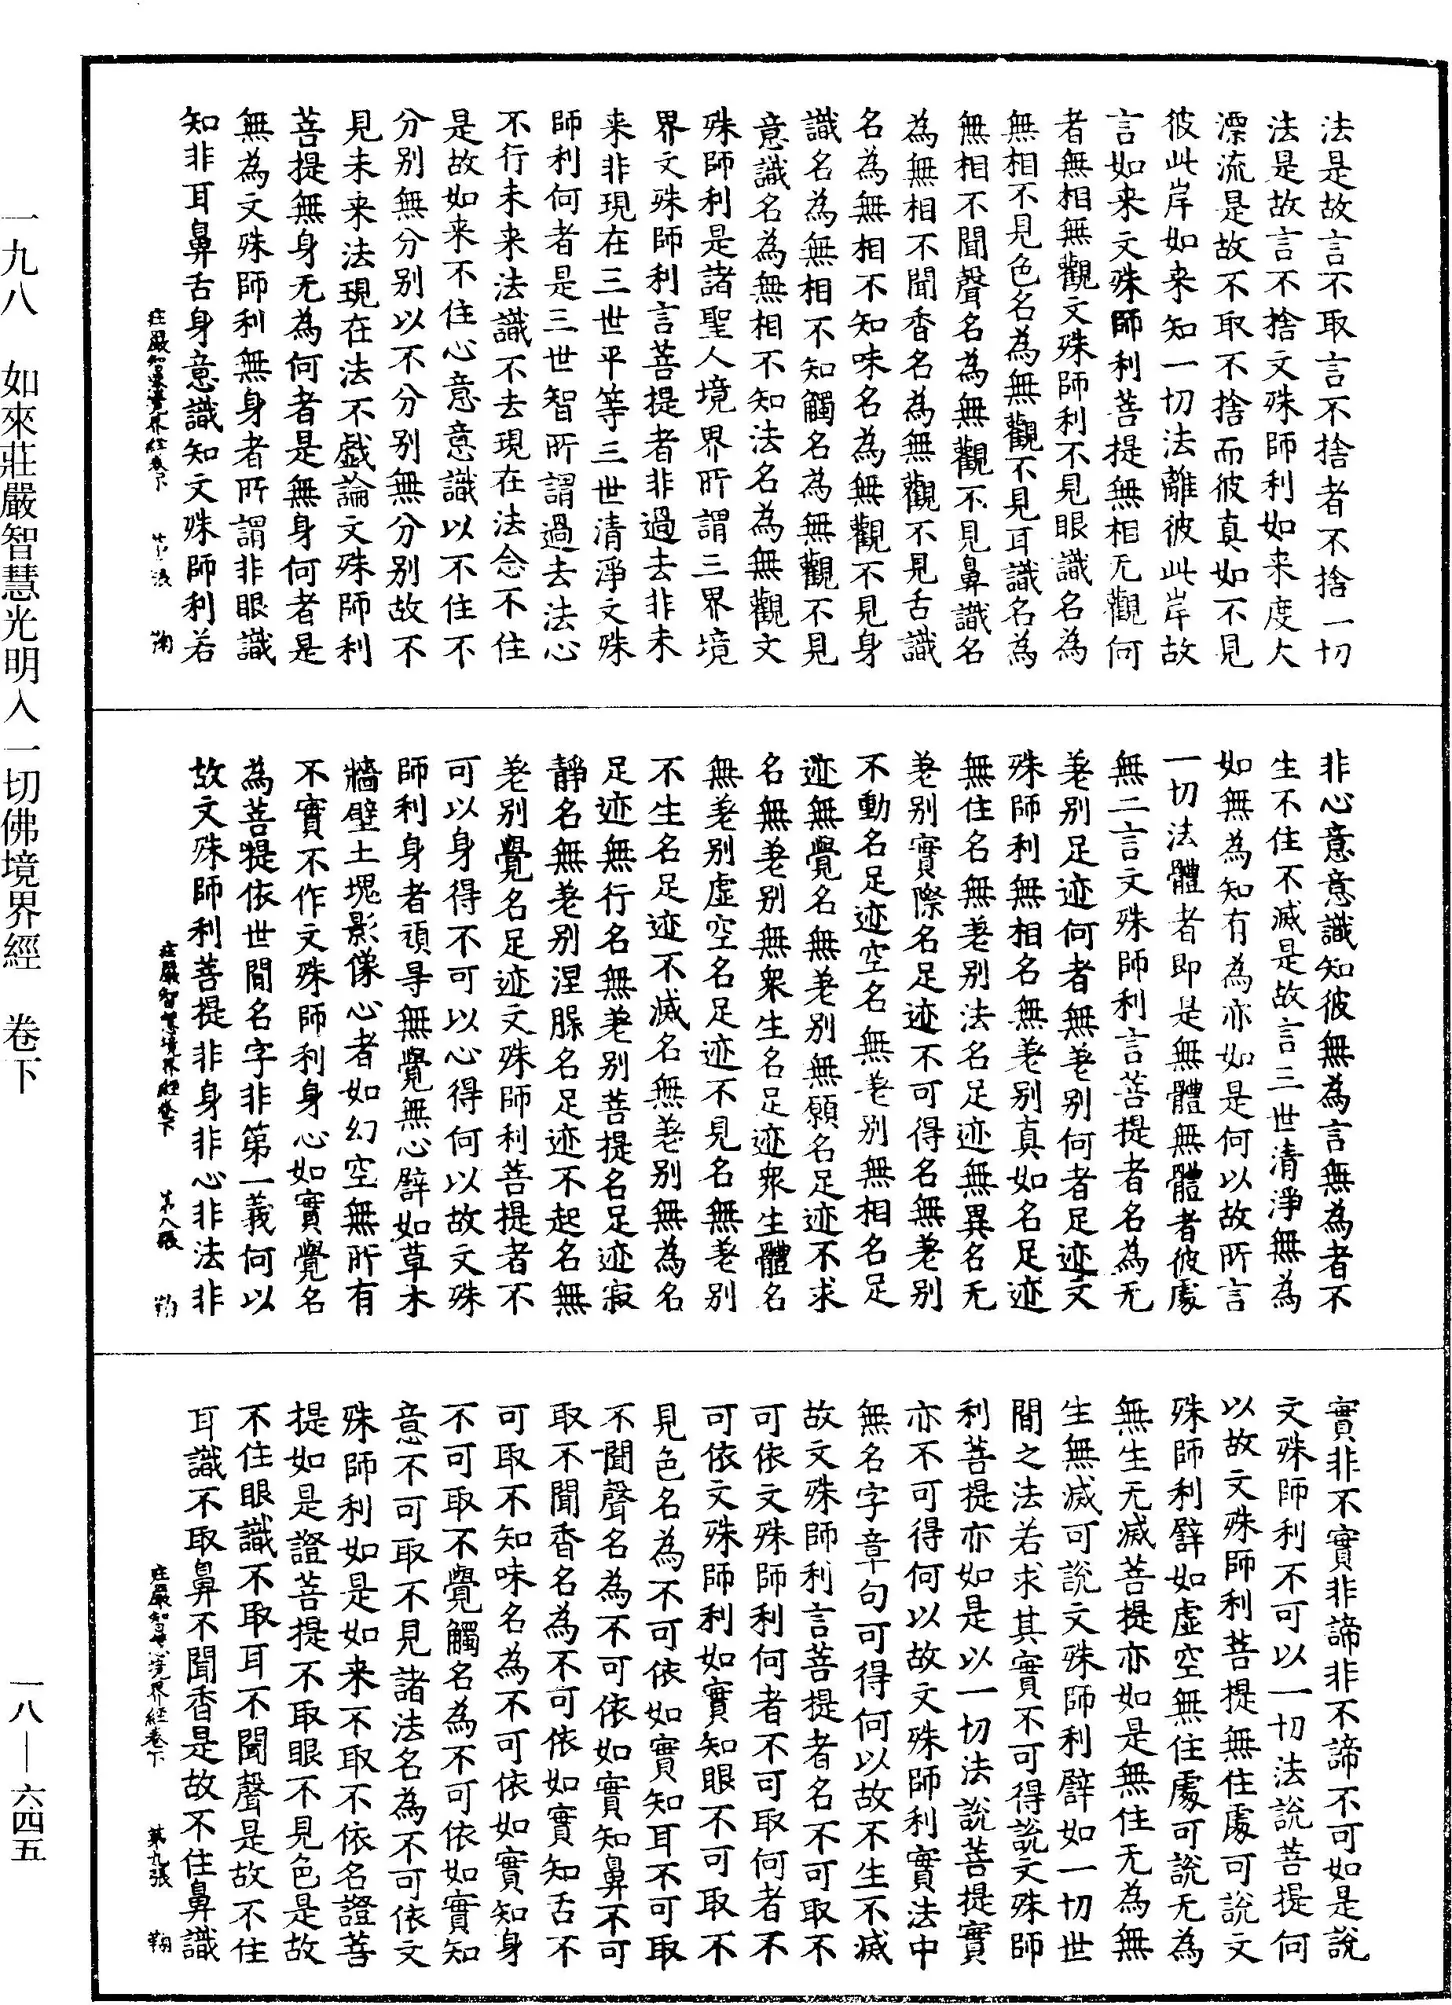 法是故言不取言不捨者不捨一切
法是故言不捨文殊師利如来度大
漂流是故不取不捨而彼真如不見
彼此岸如来知一切法離彼此岸故
言如来文殊師利菩提無相无觀何
者無相無觀文殊師利不見眼識名為
無相不見色名為無觀不見耳識名為
無相不聞聲名為無觀不見鼻識名
為無相不聞香名為無觀不見舌識
名為無相不知味名為無觀不見身
識名為無相不知觸名為無觀不見
意識名為無相不知法名為無觀文
殊師利是諸聖人境界所謂三界境
界文殊師利言菩提者非過去非未
来非現在三世平等三世清淨文殊
師利何者是三世智所謂過去法心
不行未来法識不去現在法念不住
是故如来不住心意意識以不住不
分別無分別以不分別無分別故不
見未来法現在法不戲論文殊師利
菩提無身无為何者是無身何者是
無為文殊師利無身者所謂非眼識
知非耳鼻舌身意識知文殊師利若
莊嚴智慧境界經卷下 第七張 翔
非心意意識知彼無為言無為者不
生不住不滅是故言三世清淨無為
如無為知有為亦如是何以故所言
一切法體者即是無體無體者彼處
無二言文殊師利言菩提者名為无
差別足迹何者無差別何者足迹文
殊師利無相名無差別真如名足迹
無住名無差別法名足迹無異名无
差別實際名足迹不可得名無差別
不動名足迹空名無差別無相名足
迹無覺名無差別無願名足迹不求
名無差別無衆生名足迹衆生體名
無差別虛空名足迹不見名無差別
不生名足迹不滅名無差別無為名
足迹無行名無差別菩提名足迹寂
靜名無差別涅縣名足迹不起名無
差別覺名足迹文殊師利菩提者不
可以身得不可以心得何以故文殊
師利身者頑㝵無覺無心譬如草木
牆壁土塊影像心者如幻空無所有
不實不作文殊師利身心如實覺名
為菩提依世間名字非第一義何以
故文殊師利菩提非身非心非法非
莊嚴智慧境界經卷下 第八張 翔
實非不實非諦非不諦不可如是說
文殊師利不可以一切法說菩提何
以故文殊師利菩提無住處可說文
殊師利譬如虛空無住處可說无為
無生无滅菩提亦如是無住无為無
生無滅可說文殊師利譬如一切世
間之法若求其實不可得說文殊師
利菩提亦如是以一切法說菩提實
亦不可得何以故文殊師利實法中
無名字章句可得何以故不生不滅
故文殊師利言菩提者名不可取不
可依文殊師利何者不可取何者不
可依文殊師利如實知眼不可取不
見色名為不可依如實知耳不可取
不聞聲名為不可依如實知鼻不可
取不聞香名為不可依如實知舌不
可取不知味名為不可依如實知身
不可取不覺觸名為不可依如實知
意不可取不見諸法名為不可依文
殊師利如是如来不取不依名證菩
提如是證菩提不取眼不見色是故
不住眼識不取耳不聞聲是故不住
耳識不取鼻不聞香是故不住鼻識
莊嚴智慧境界經卷下 第九張 翔
一九八 如來莊嚴智慧光明入一切佛境界經 卷下
一八—六四五